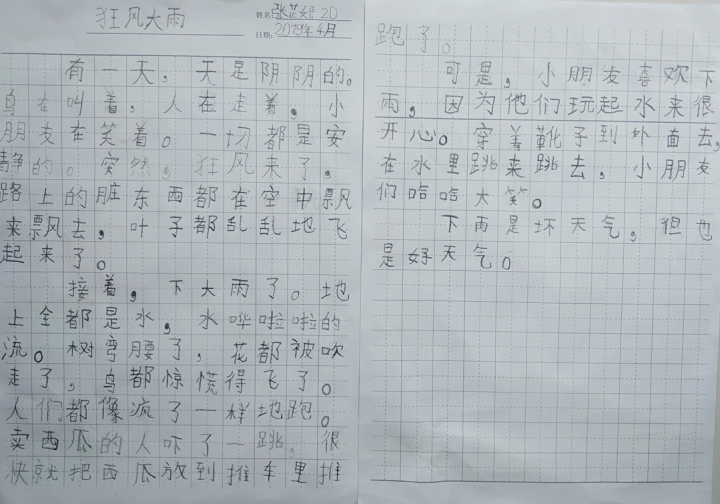 狂风大雨
姓名 张芷嫣 2D
日期: 2019年4月
有一天，天是阴阴的。
鸟在叫着，人在走着。小
朋友在笑着。一切都是安
静的。突然，狂风来了，
路上的脏东西都在空中飘
来飘去，叶子都乱乱地飞
起来了。
接着，下大雨了。地
上全都是水，水哗啦啦的
流。树弯腰了，花都被吹
走了，鸟都惊慌得飞了。
人们都像疯了一样地跑。
卖西瓜的人吓了一跳，很
快就把西瓜放到推车里推
跑了。
可是，小朋友喜欢下
雨，因为他们玩起水来很
开心。穿着靴子到外面去，
在水里跳来跳去，小朋友
们哈哈大笑。
下雨是坏天气，但也
是好天气。